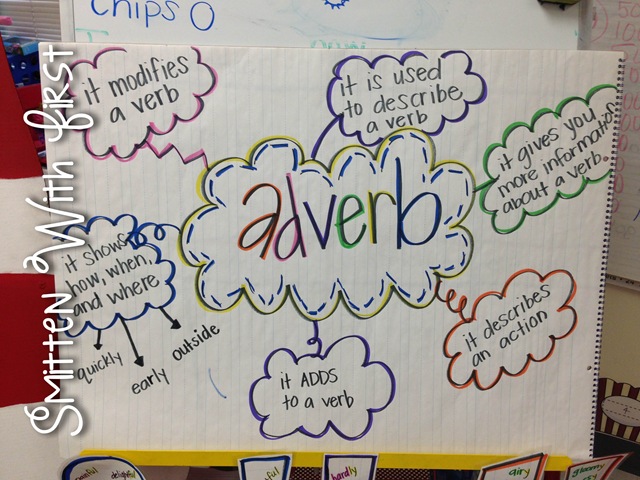 chips O
it modifies
a verb
it is used
to describe
a verb
it gives you
more information
about a verb
adverb
it shows
how, when,
and where
quickly
early
outside
it ADDS
to a verb
it describes
an action
Smitten With First
delightful
hardly
airy
gloomy